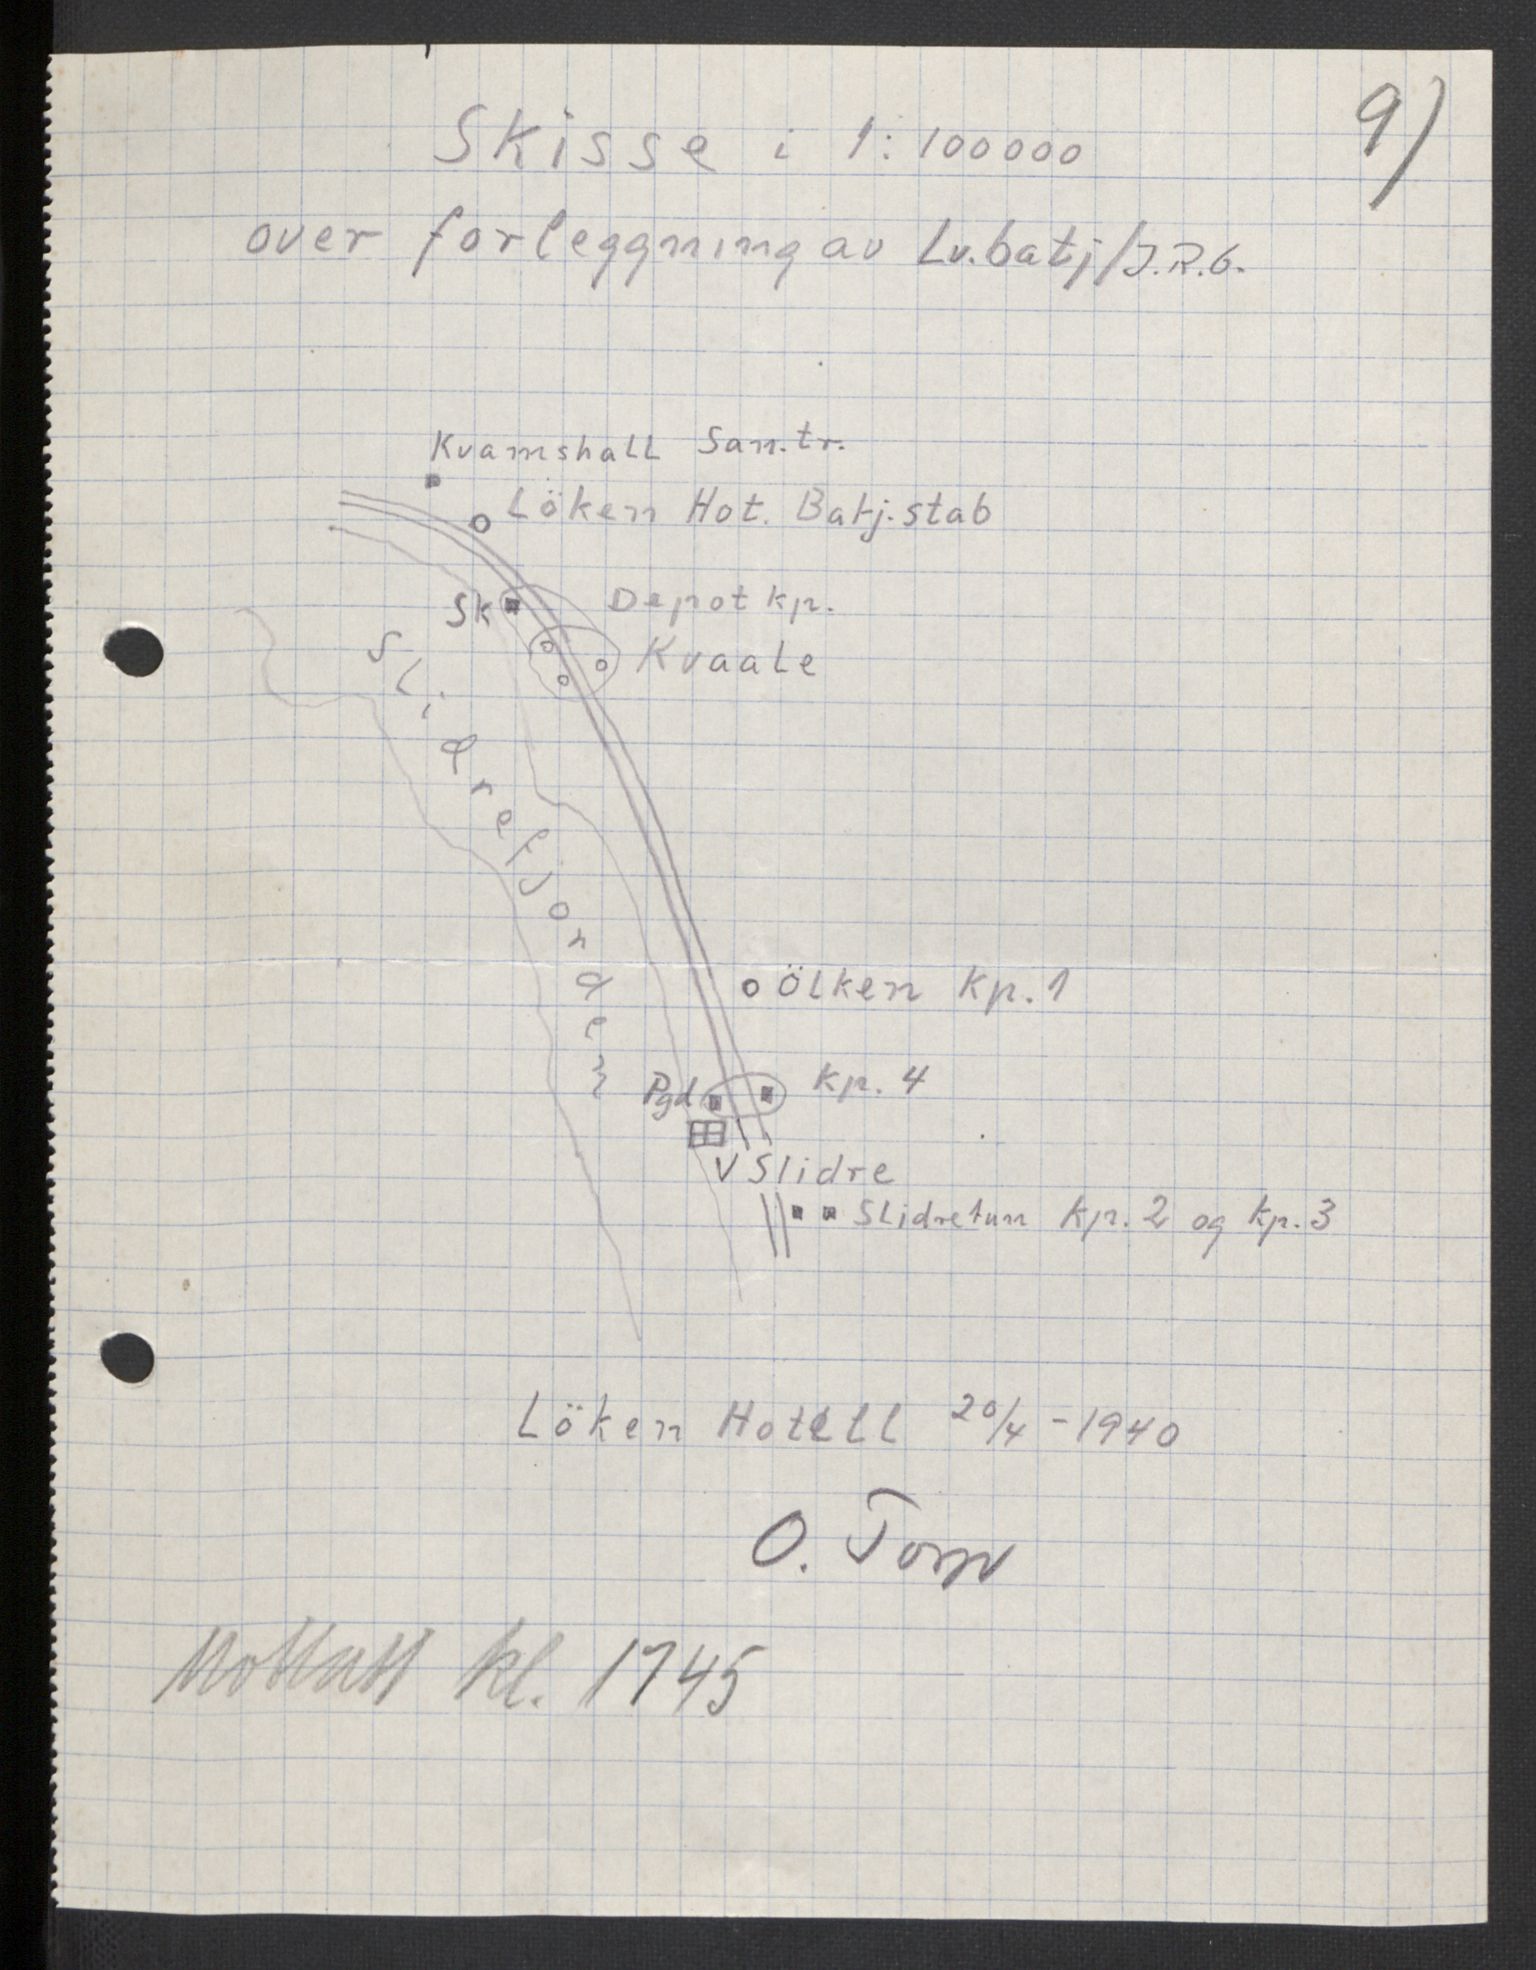 9)
Skisse i 1:100000
over forleggning av Lv.batj/J.R.6.
Kvamshall San.tr.
Löken Hot. Batj.stab
Sk
Depot kp.
Kvaale
Slidrefjorden
Ölken Kp.1
Pgd
Kp. 4
V Slidre
Slidretun Kp. 2 og Kp. 3
Löken Hotell 20/4 - 1940
O. Torp
Mottatt kl. 1745